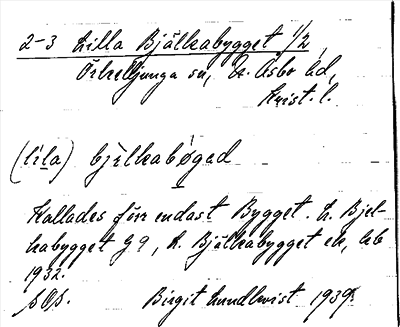 2-3 Lilla Bjälkabygget 1/2
Örkelljunga sn, N. Åsbo hd,
Krist. l.
(lila) bjälkabøgad
Kallades förr endast Bygget. L. Bjel-
kabygget G 9, L. Bjälkabygget ek, kb
1932.
Birgit Lundkvist 1939.